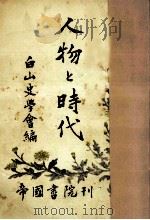 人物と時代
白山史學會編
帝國書院刊